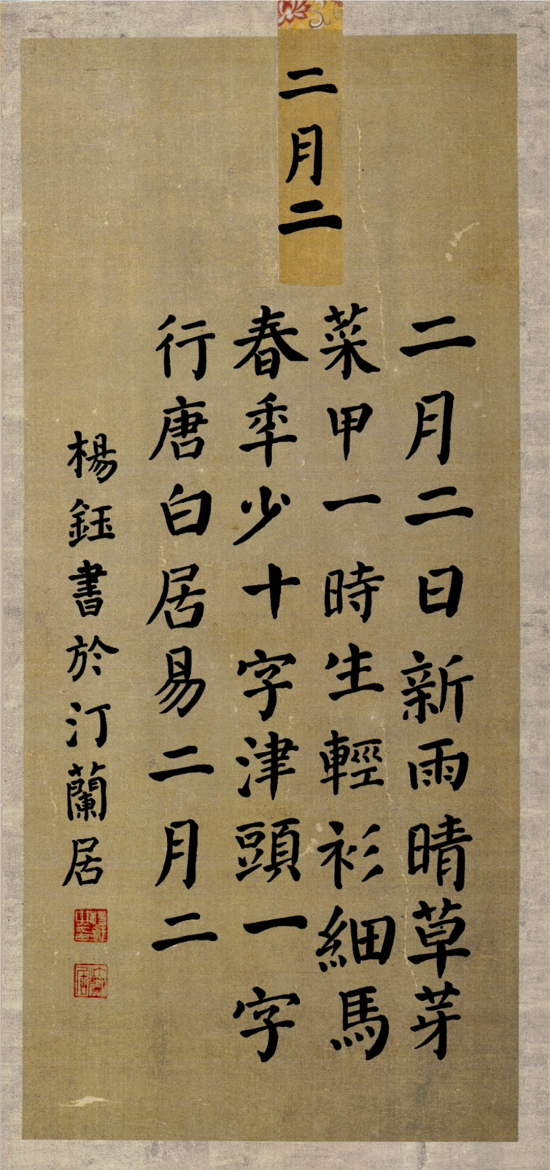 二月二
二月二日新雨晴草芽
菜甲一時生輕衫細馬
春秊少十字津頭一字
行唐白居易二月二
楊鈺書於汀蘭居